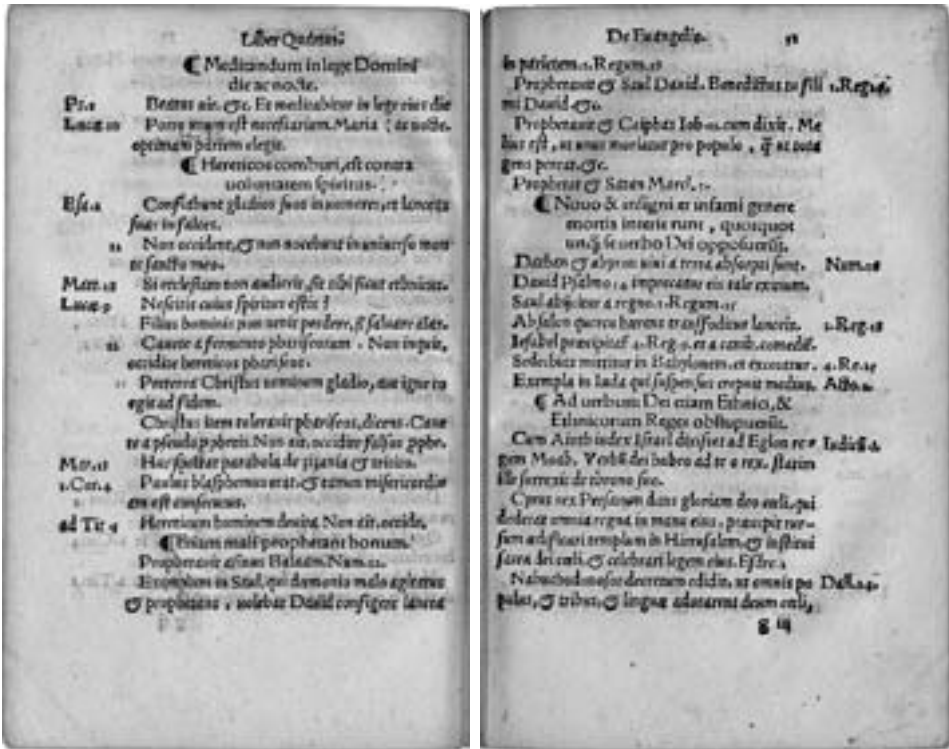 Liber Quintus.
¶ Meditandum in lege Domini
die ac nocte.
Ps.1 Beatus uir. &c. Et meditabitur in lege eius die
Lucæ 10 Porro unum est necessarium. Maria : ac nocte.
optimam partem elegit.
¶ Hereticos comburi, est contra
uoluntatem spiritus.
Esa.2 Conflabunt gladios suos in uomeres, et lanceas
suas in falces.
11 Non occident, & non nocebunt in uniuerso mon
te sancto meo.
Mat.18 Si ecclesiam non audierit, sit tibi sicut ethnicus.
Lucæ 9 Nescitis cuius spiritus estis?
Filius hominis non uenit perdere, sed saluare
12 Cauete a fermento phariseorum. Non inquit,
occidite hereticos phariseos.
Preterea Christus neminem gladio, aut igne co
egit ad fidem.
Christus item tolerauit phariseos, dicens. Caue
te a pseudo Non ait, occidite falsos pphe.
Mat.13 Huc spectat parabola de zizania & tritico.
1.Cor.4 Paulus blasphemus erat, & tamen misericordia
am est consecutus.
ad Tit 3 Hereticum hominem deuita. Non ait, occide.
¶ Etiam mali prophetant bonum.
Prophetauit asinus Balaam. Num.22.
Exemplum in Saul, qui demonio malo agitatus
& prophetans, uolebat Dauid configere lancea
De Euangelio.
in parietem.1.Regum.18
Prophetauit & Saul Dauid. Benedictus tu fili 1.Reg.26.
mi Dauid &c.
Prophetauit & Caiphas Ioh.11. cum dixit. Me
lius est, ut unus moriatur pro populo, q̃ ut tota
gens pereat. &c.
Prophetat & Satan Marci.1.
¶ Nouo & insigni et infami genere
mortis interierunt, quotquot
unq̃ se uerbo Dei opposuerũt.
Dathan & abyron uiui a terra absorpti sunt. Num.16
Dauid Psalmo 54 imprecatur eis tale exitium.
Saul abijcitur a regno.1.Regum.15
Absalon quercu hærens transfoditur lanceis. 2.Reg.18
Iesabel præcipitat̃ 4.Reg.9. et a canib. comedit̃.
Sedechias mittitur in Babylonem. et excæcatur. 4.Re.25
Exempla in Iuda qui suspensus crepuit medius. Acto.1.
¶ Ad uerbum Dei etiam Ethnici, &
Ethnicorum Reges obstupuerũt.
Cum Aioth iudex Israel dixisset ad Eglon re Iudicũ.3.
gem Moab. Verbũ dei habeo ad te o rex. statim
ille surrexit de throno suo.
Cyrus rex Persarum dans gloriam deo cæli, qui
dederat omnia regna in manu eius, præcepit rur-
sum ædificari templum in Hierusalem, & institui
sacra dei cæli, & celebrari legem eius. Esdre.1
Nabuchodonosor decretum edidit, ut omnis po Dañ.3.4.
pulus, & tribus, & linguæ adorarent deum cæli,
g iij